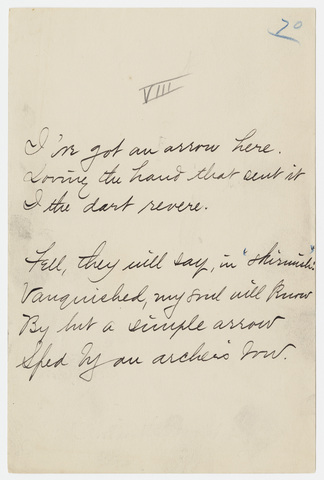 70
VIII
I've got an arrow here.
Loving the hand that sent it
I the dart revere.
Fell, they will say, in "skirmish"
Vanquished, my soul will know
By but a simple arrow
Sped by an archer's bow.